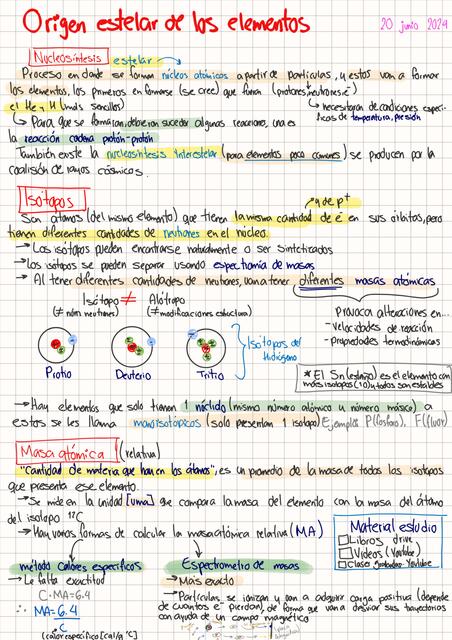 Origen estelar de los elementos
20 junio 2024
Nucleosíntesis estelar
Proceso en donde se forman núcleos atómicos a partir de partículas, y estos van a formar
los elementos, los primeros en formarse (se cree) que fueron (protones, neutrones, e-)
el He y H (más sencillos)
→ necesitaron de condiciones especí-
ficas de temperatura, presión
↳ Para que se formaran, debieron suceder algunas reacciones, una es
la reacción cadena protón-protón
También existe la nucleosíntesis interestelar (para elementos poco comunes) se producen por la
coalisión de rayos cósmicos.
Isótopos
y de p+
Son átomos (del mismo elemento) que tienen la misma cantidad de e- en sus órbitas, pero
tienen diferentes cantidades de neutrones en el núcleo.
→ Los isótopos pueden encontrarse naturalmente o ser sintetizados
→ Los isótopos se pueden separar usando espectrometría de masas
→ Al tener diferentes cantidades de neutrones, van a tener diferentes masas atómicas
Isótopo ≠ Alótropo
(≠ núm neutrones) (≠ modificaciones estructura)
Provoca alteraciones en...
- Velocidades de reacción
- Propiedades termodinámicas
Isótopos del
Hidrógeno
Protio Deuterio Tritio
* El Sn (estaño) es el elemento con
más isótopos (10) y todos son estables
→ Hay elementos que solo tienen 1 núclido (mismo número atómico y número másico) a
estos se les llama monoisotópicos (solo presentan 1 isótopo) Ejemplos P (fósforo), F (flúor)
Masa atómica (relativa)
"Cantidad de materia que hay en los átomos", es un promedio de la masa de todos los isótopos
que presenta ese elemento.
→ Se mide en la unidad [uma] que compara la masa del elemento con la masa del átomo
del isótopo 12C
→ Hay varias formas de calcular la masa atómica relativa (MA)
Material estudio
Libros drive
Videos (Youtube)
Clases Youtube
método calores específicos Espectrómetro de masas
→ Le falta exactitud
→ Más exacto
C · MA = 6.4
→ Partículas se ionizan y van a adquirir carga positiva (depende
de cuantos e- pierdan), de forma que van a desviar sus trayectorias
con ayuda de un campo magnético
∴ MA = 6.4
C
(calor específico [cal/g °C]